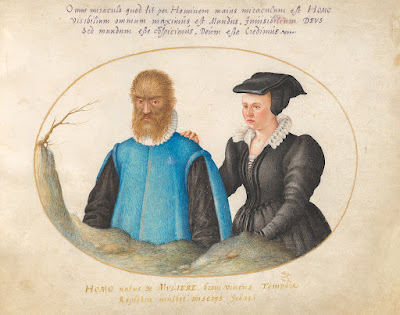 Omni miraculo quod fit per Hominem maius miraculum est HOMO
Visibilium omnium maximus est Mundus, Invisibilium DEUS
Sed mundum esse conspicimus, Deum esse Credimus
HOMO natus de MULIERE, brevi vivens Tempore
Repletur multis miseriis